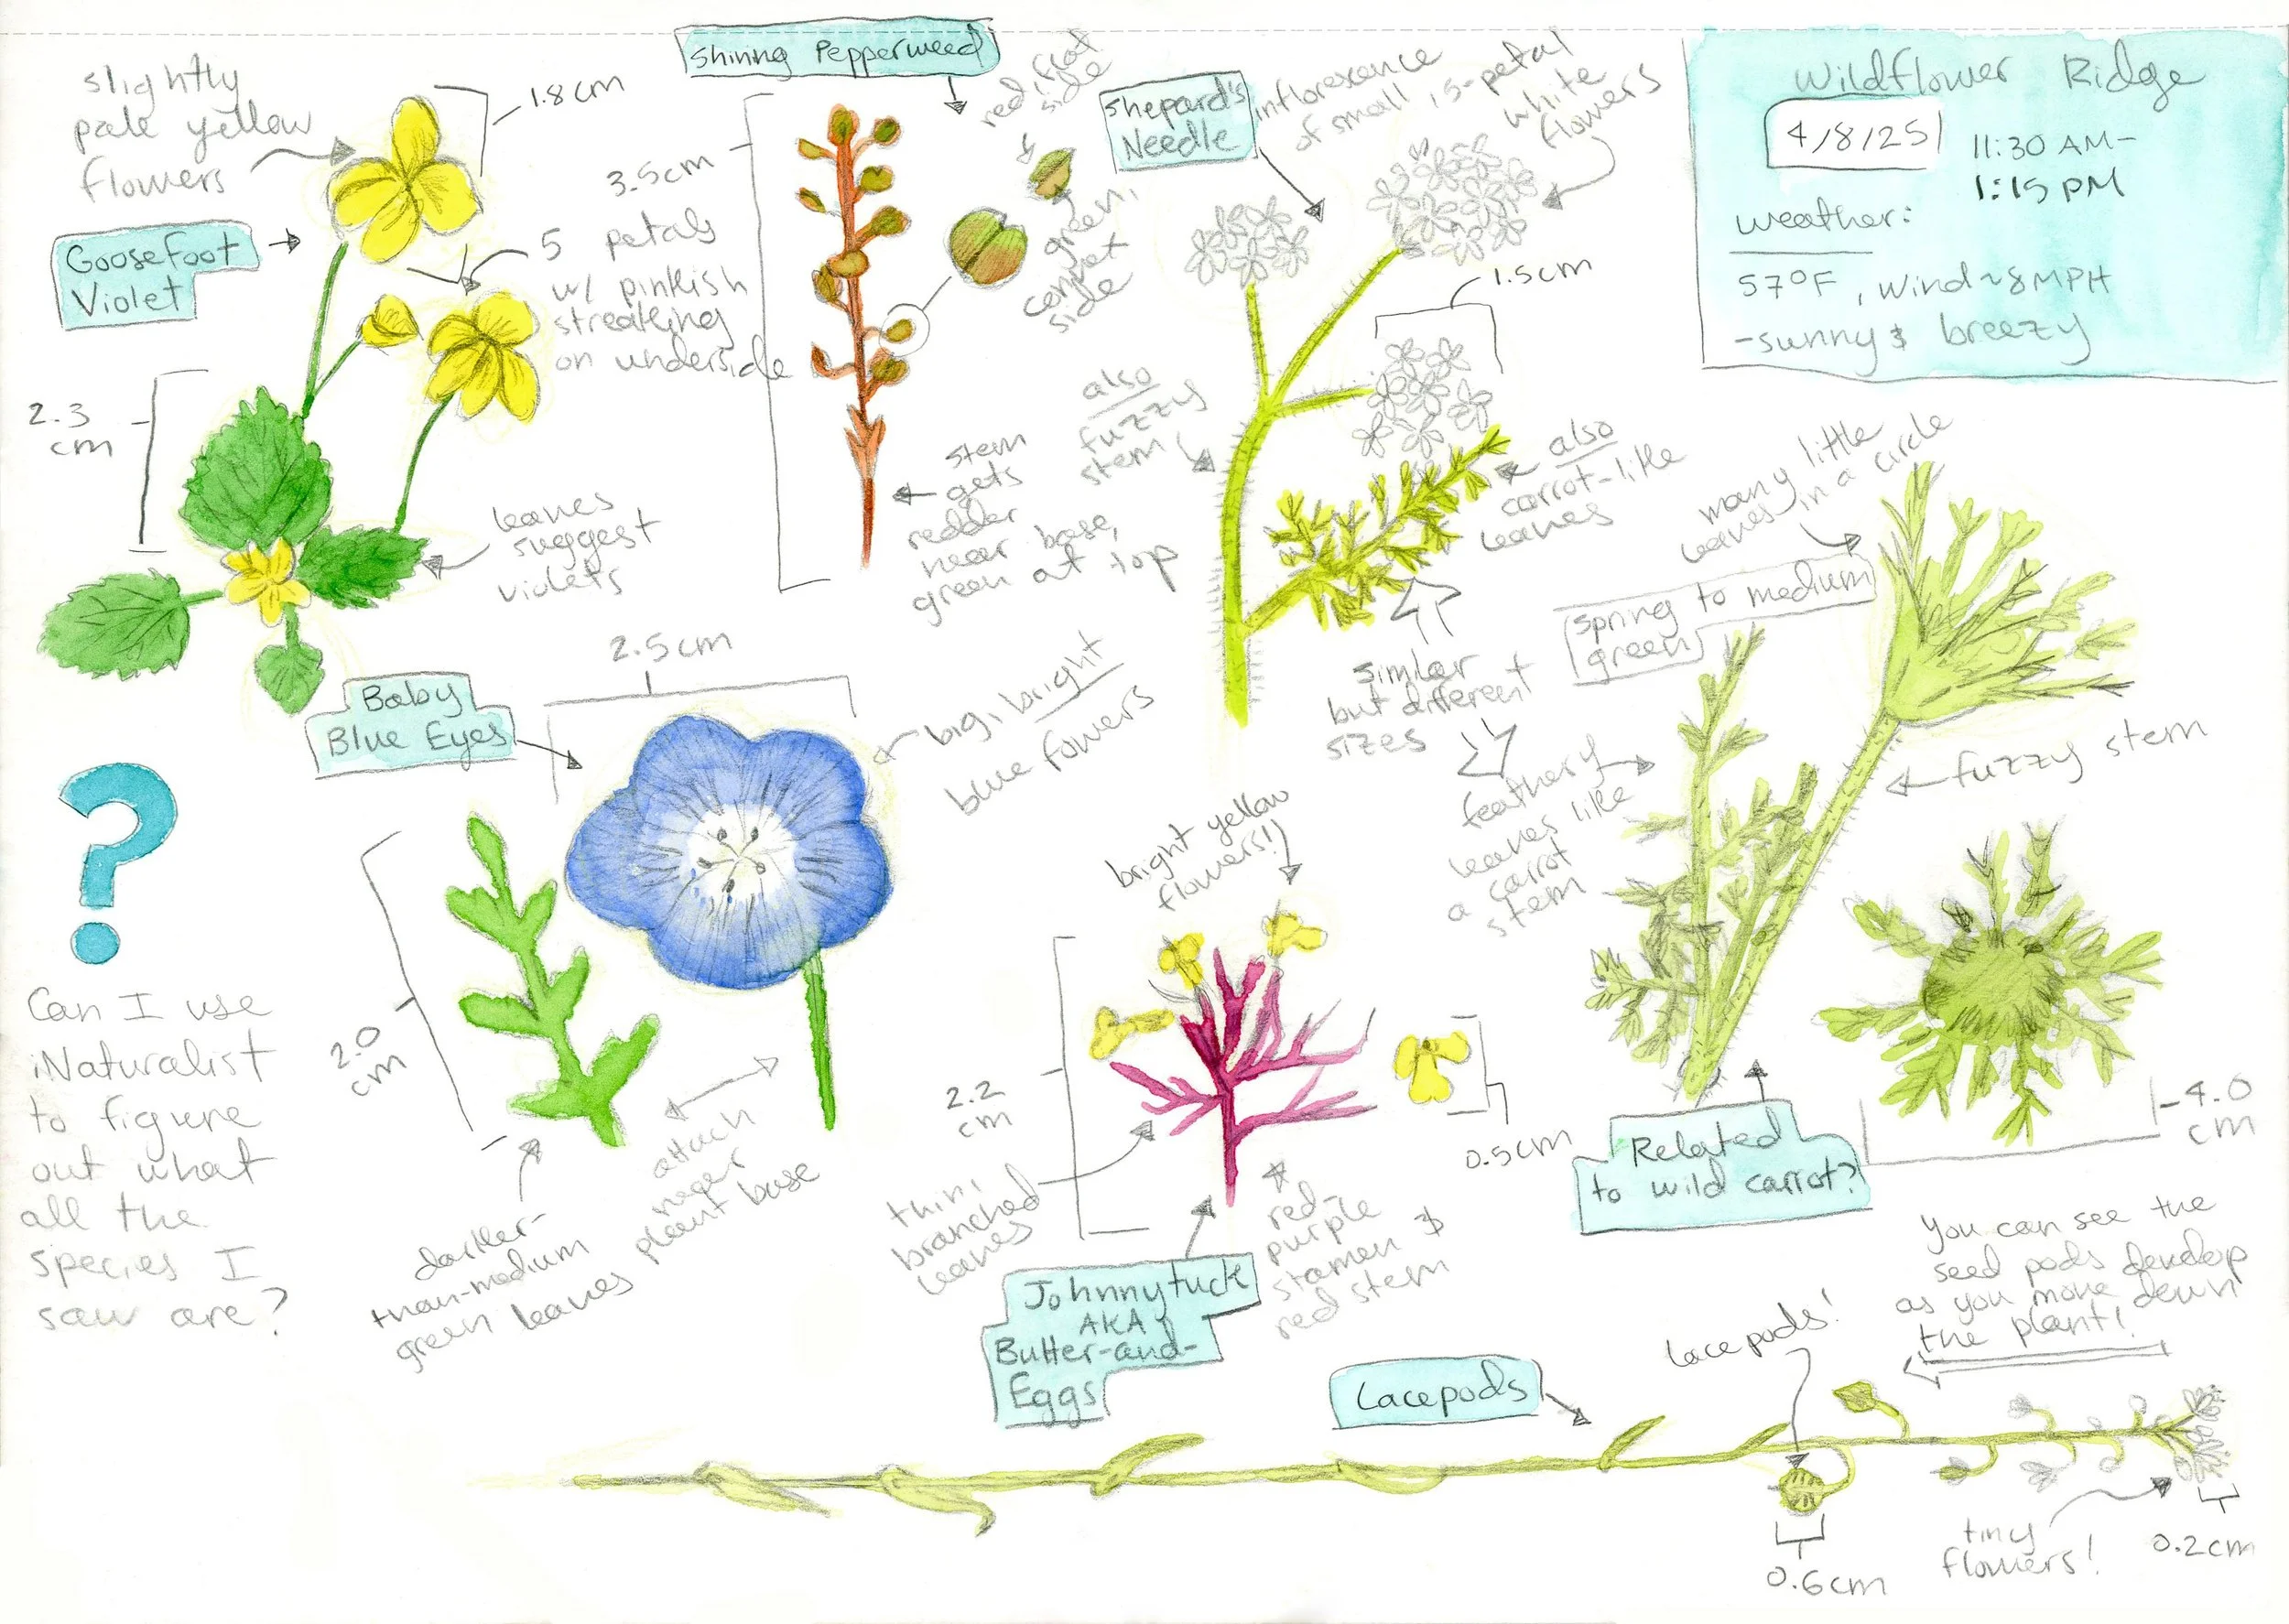 Wildflower Ridge
4/8/25
11:30 AM-
1:15 PM
weather:
57°F, wind ~8MPH
-sunny & breezy
slightly
pale yellow
flowers
1.8cm
Goosefoot
Violet
5 petals
w/ pinkish
streaking
on underside
2.3
cm
leaves
suggest
violets
Shining Pepperweed
3.5cm
red, flat
side
green,
convex
side
stem
gets
redder
near base,
green at top
Shepard's
Needle
inflorescence
of small, 5-petal
white
flowers
1.5cm
also
fuzzy
stem
also
carrot-like
leaves
similar
but different
sizes
many little
leaves in a circle
spring to medium
green
feathery
leaves like
a carrot
stem
fuzzy stem
Related
to wild carrot?
4.0
cm
Baby
Blue Eyes
2.5cm
big, bright
blue fowers
2.0
cm
attach
near
plant base
darker-
than-medium
green leaves
?
Can I use
iNaturalist
to figure
out what
all the
species I
saw are?
bright yellow
flowers!)
2.2
cm
0.5cm
thin,
branched
leaves
red-
purple
stamen &
red stem
Johnnytuck
AKA
Butter-and-
Eggs
Lacepods
Lacepods!
You can see the
seed pods develop
as you move down
the plant!
0.6cm
tiny
flowers!
0.2cm